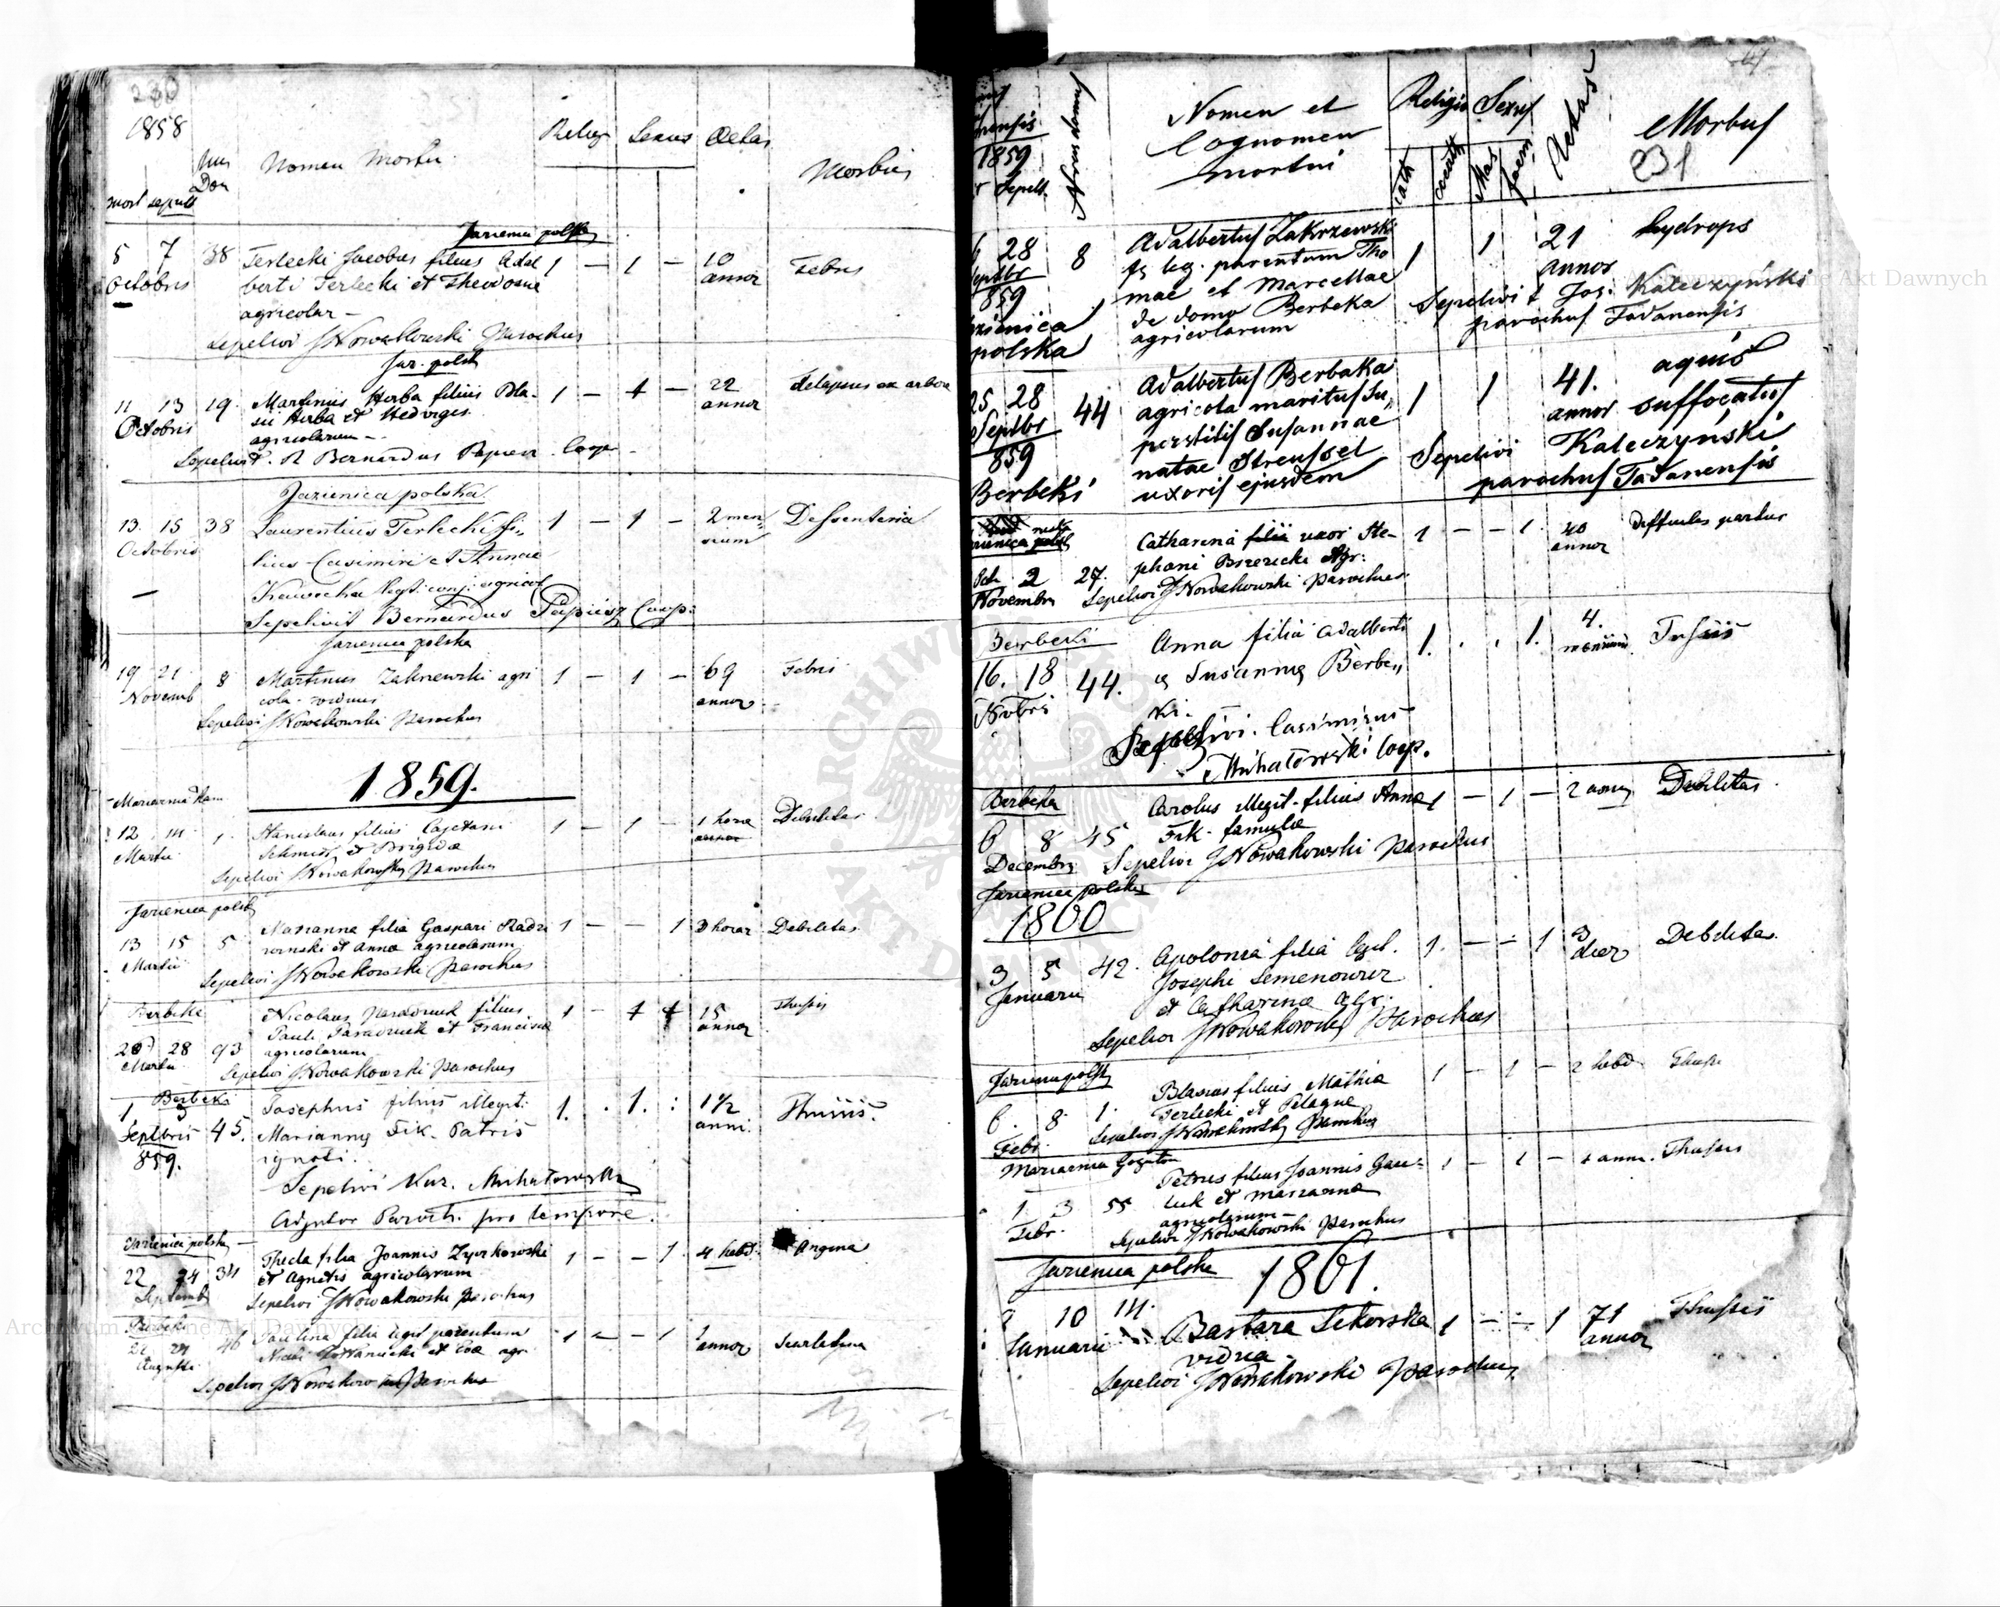 230
1858
mort sepult
Nus Dom
Nomen Mortu.
Religi
Sexus
Aetas
Morbus
Jarienica polska
5 7 38 Terlecki Jacobus filius Adal 1 — 1 — 10 Febris
Octobris berti Terlecki et Theodosiae annor
agricolar —
Sepelivi JNowakowski Parochus
Jar. polsk
11 13 19. Martinus Horba filius Bla- 1 — 1 — 22 delapsus ex arbore
Octobris sii Horba et Hedvigis annor
agricolarum —
Sepelivit. R Bernardus Papiesz Coop —
Jarienica polska
13. 15 38 Laurentius Terlecki fi- 1 — 1 — 2 men- Dessenteria
Octobris lius Casimiri et Annae sium
legit: conj: agricol
Sepelivit Bernardus Papiesz Coop:
Jarienica polska
19 21 8 Martinus Zakrzewski agri 1 — 1 — 69 Febris
Novemb cola viduus annor
Sepelivi JNowakowski Parochus
1859.
12 14 1. Stanislaus filius Cajetani 1 — 1 — 1 hora Debilitas
Martii Schmidt et Brigidae annor
Sepelivi JNowakowski Parochus
Jarienica polsk
13 15 5 Marianna filia Gaspari Radzi 1 — — 1 3 horar Debilitas
Martii et Anna agricolarum
Sepelivi JNowakowski Parochus
Berbeki Nicolaus Paradziuk filius 1 — 1 1 15 Thusis
28 93 Pauli et Francisca annor
Martii agricolarum
Sepelivi JNowakowski Parochus
Berbeki
1 3 Josephus filius illegit: 1. . 1. : 1 1/2 Thusis.
Septbris 45. Mariannę Fik. Patris anni.
859. ignoti.
Sepelivi Kaz. Michałowski
Adjutor Paroch. pro tempore.
Jarienica polska
22 24 34 Thecla filia Joannis Zyczkowski 1 — — 1 4 hebd: Angina
Septemb et Agnetis agricolarum
Sepelivi JNowakowski Parochus
Berbek
22 24 46 Paulina filia legit parentum 1 — — 1 annor Scarlatina
Augusti et Evae agr.
Sepelivi JNowakowski Parochus
1859
Sepult.
Nrus domus
Nomen et
Cognomen
mortui
Religio Sexus
cath Mas faem
Aetas
Morbus
231
28 8 Adalbertus Zakrzewski 1 1 21 hydrops
Septbr fs leg. parentum Tho annor
859 mae et Marcellae
de domo Berbeka Sepelivi Jos: Kaleczyński
agricolarum parochus Tadanensis
polska
25 28 44 Adalbertus Berbeka 1 1 41. aquis
Septbr agricola maritus su, annor suffocatus
859 perstitis Susannae Sepelivi Kaleczyński
natae Streussel parochus Tadanensis
Berbeki uxoris ejusdem
2 27. Catharina filia uxor Ste- 1 — — 1. 40 difficiles partus
phani Brzezicki Agr: annor
Novembr Sepelivi JNowakowski Parochus
Berbeki Anna filia Adalberti 1. . . 1. 4. Tussis
16. 18 44. ę Susannę Berbe,, mensium
Nvbri ki.
Sepelivi. Casimirus
Michałowski Coop.
Berbeka Carolus illegit. filius Anna 1 — 1 — 2 annor Debilitas.
6 8 45 Fik. famulae
Decembr Sepelivi JNowakowski Parochus
Jarienica polska
1860
3 5 42. Apolonia filia legit. 1. — — 1 3 Debilitas.
Januarii Josephi Semenowicz dier
et Catharina agr:
Sepelivi JNowakowski Parochus
Jarienica polsk
6. 8. 1. Blasius filius Mathia 1 — 1 — 2 hebd. Thusis
Febr. Terlecki et Pelagiae
Sepelivi JNowakowski Parochus
1. 3 55 Petrus filius Joannis Gau- 1 — 1 — annor. Thusis
Febr. luk et Marianna
agricolarum —
Sepelivi JNowakowski Parochus
Jarienica polska
1861.
10 14. Barbara Sikorska 1 — — 1 71 Thusis
Januarii vidua — annor
Sepelivi JNowakowski Parochus
ARCHIWUM GŁÓWNE AKT DAWNYCH
Archiwum Główne Akt Dawnych
Archiwum Główne Akt Dawnych